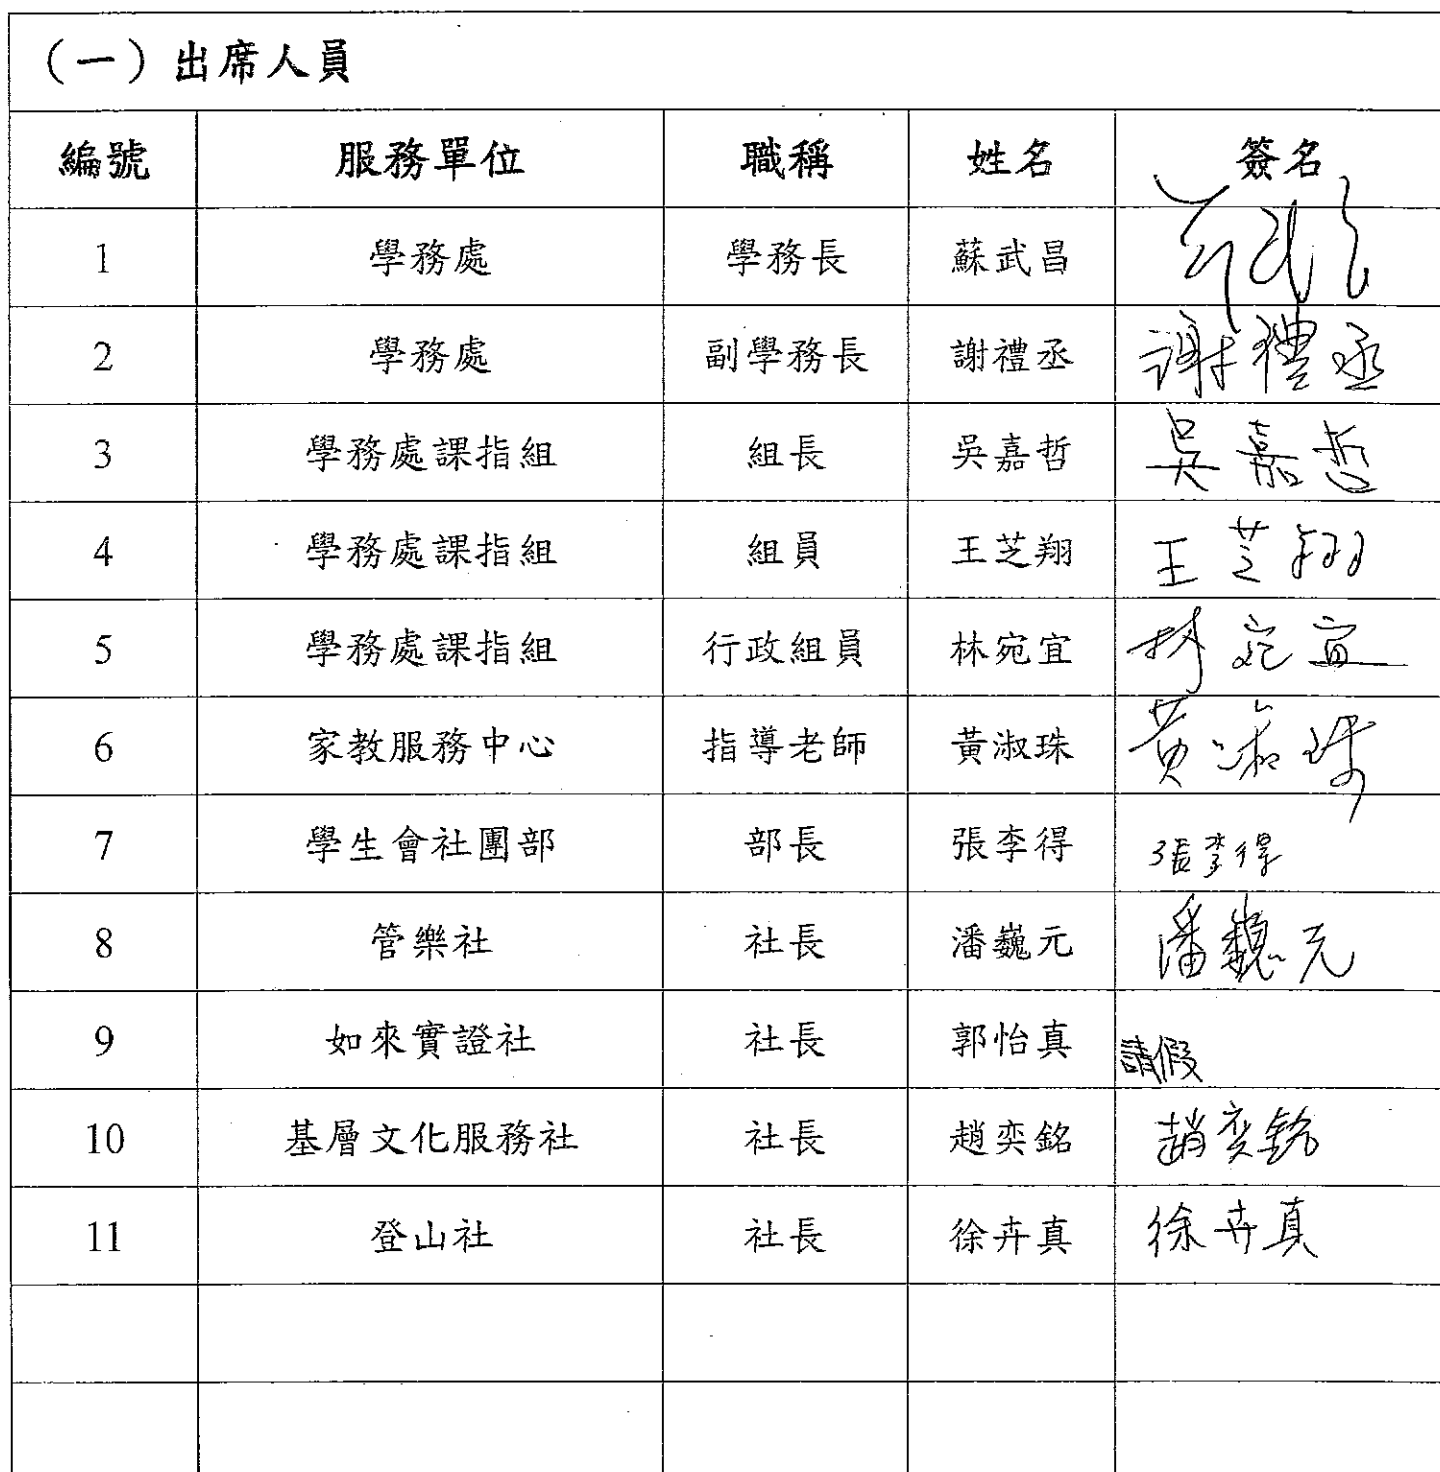 （一）出席人員
編號 服務單位 職稱 姓名 簽名
1 學務處 學務長 蘇武昌
2 學務處 副學務長 謝禮丞 謝禮丞
3 學務處課指組 組長 吳嘉哲 吳嘉哲
4 學務處課指組 組員 王芝翔 王芝翔
5 學務處課指組 行政組員 林宛宜 林宛宜
6 家教服務中心 指導老師 黃淑珠 黃淑珠
7 學生會社團部 部長 張李得 張李得
8 管樂社 社長 潘巍元 潘巍元
9 如來實證社 社長 郭怡真 請假
10 基層文化服務社 社長 趙奕銘 趙奕銘
11 登山社 社長 徐卉真 徐卉真